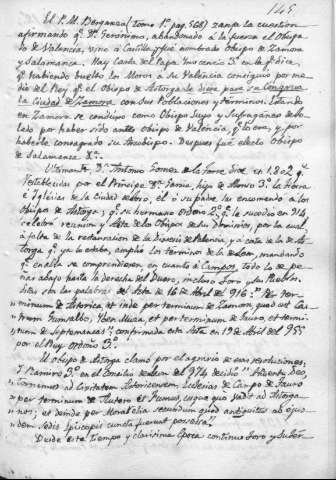 145
El P. M. Berganza (tomo 1º pag. 568) zanja la cuestion
afirmando qe. Dn. Geronimo, abandonado a la fuerza el Obispa
do de Valencia, vino a Castilla y fue nombrado Obispo de Zamora
y Salamanca. Hay Carta del Papa Inocencio 3º en la qe. dice,
qe. habiendo buelto los Moros a su Valencia consiguio por me
dio del Rey qe. el Obispo de Astorga le diera
la Ciudad de Zamora con sus Poblaciones y terminos. Estando
en Zamora se condujo como Obispo Suyo y Sufraganeo de to
ledo por haber sido antes Obispo de Valencia, qe. lo era, y por
haberle consagrado su Arzobispo. Despues fue electo Obispo
de Salamanca
Dn. Antonio Gomez de la Torre dice en 1802 qe.
restablecidas por el Principe Dn. Garcia, hijo de Alonso 3º
é Iglesias de la Ciudad de Toro, él ó su padre las encomendo a los
Obispos de Astorga; qe. su hermano Ordoño 2º qe. le sucedio en 914,
celebró reunion y Acta de los Obispos de sus Dominios, por la cual,
á falta de la restauracion de la Diocesis de Palencia, y a cuenta de la de As-
torga qe. ya lo estaba, amplió los terminos de la de Leon, mandando
qe. en ella se comprendiesen en cuanto a Campos, todo lo de pe
ñas abajo hasta la derecha del Duero, incluso Toro y sus Pueblos.
Estas son las palabras del Acta de 16 de Abril de 916: "Per ter-
minum de Astorica et inde per terminum de Zamora quod est Cas-
trum et per terminum de Tauro, et termi-
num de Septemancas"; confirmada esta Acta en 19 de Abril de 955
por el Rey Ordoño 3º.
El obispo de Astorga clamó por el agravio de esas resoluciones,
y Ramiro 3º en el Concilio de Leon del 974 decidió "Adhuc Deo,
Concedimus ad Civitatem Astoricensem Ecclesias de Campo de Tauro
per terminum de Autero et Fumus, usque quo vadit ad Artiga
nos; et deinde per secundum quod antiquitus ad ejus-
dem Sedis Episcopis cuncta fuerunt possessa".
Desde este tiempo y clarisima Epoca continuo Toro y Suber